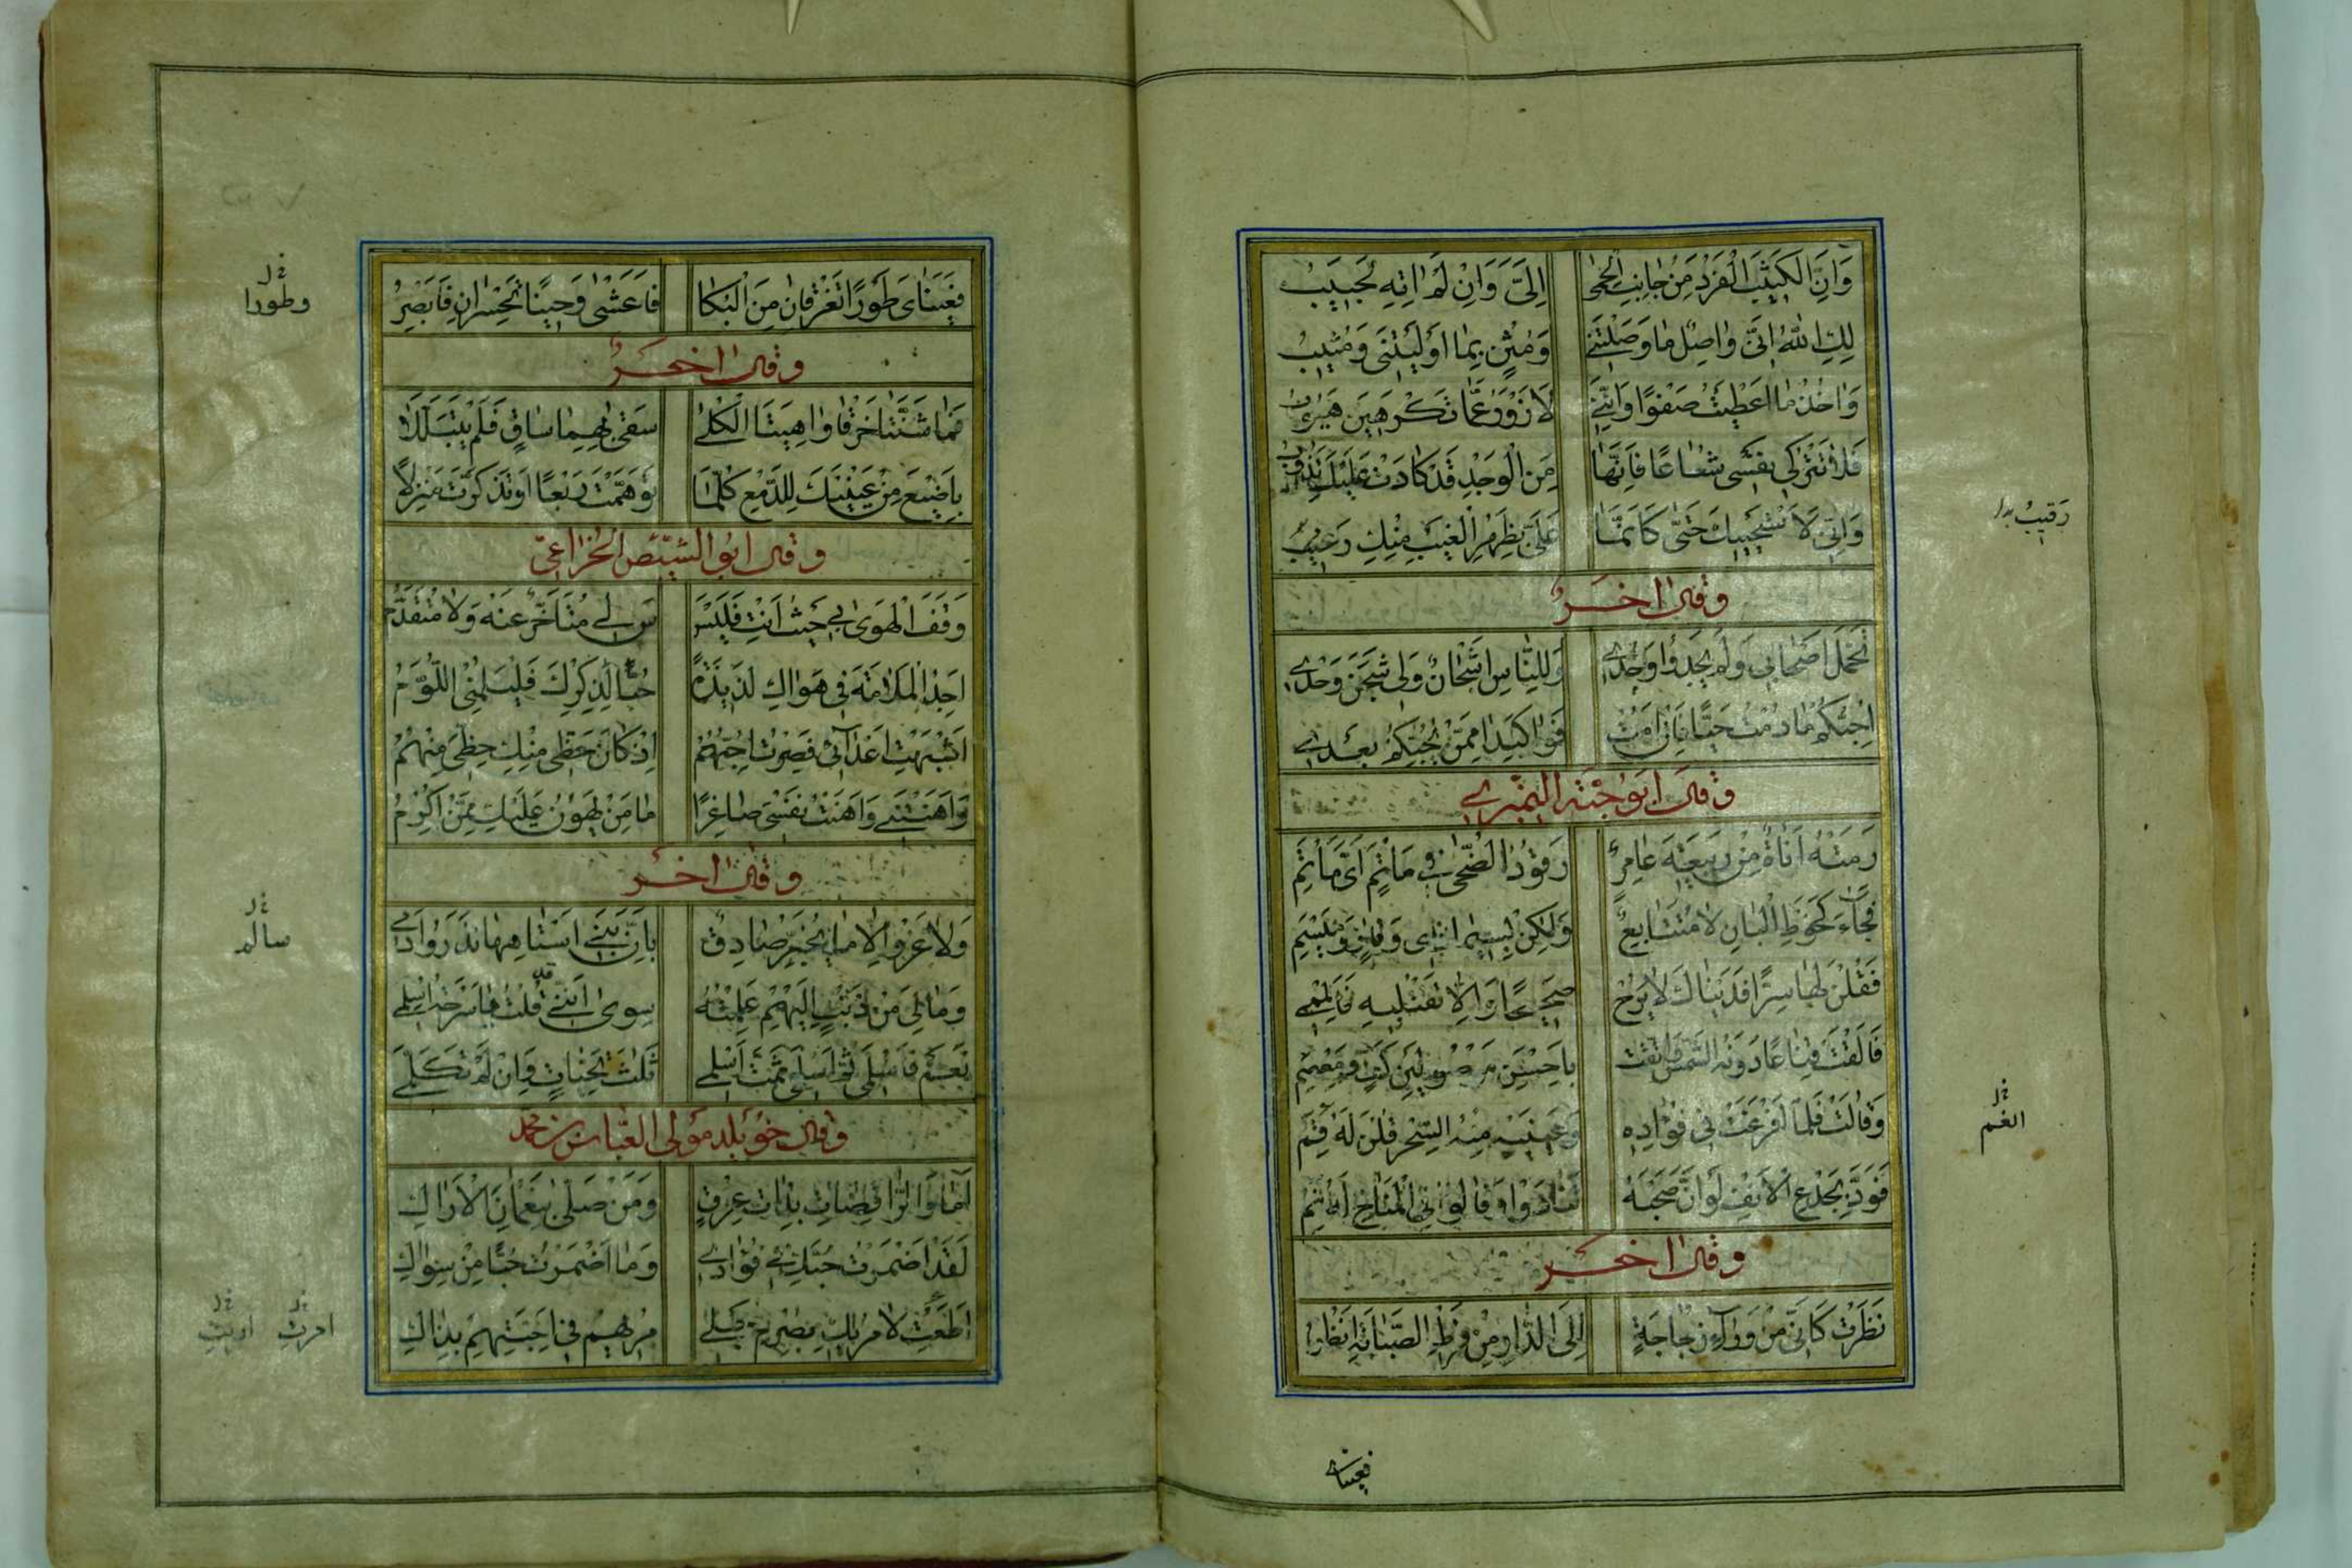 وَاِنَّ الْكَثِيْبَ الْفَرْدَ مِنْ جَانِبِ الْحِمٰى اِلَىَّ وَاِنْ لَمْ اٰتِهِ لَحَبِيْبُ
لَكِ اللّٰهُ اِنِّى وَاصِلٌ مَا وَصَلْتِنِىْ وَمُثْنٍ بِمَا اَوْلَيْتِنِى وَمُثِيْبُ
وَاٰخُذُ مَا اَعْطَيْتِ صَفْوًا وَاِنَّنِىْ لَاَزْوَرُ عَمَّا تَكْرَهِيْنَ هَيُوْبُ
فَلَا تَتْرُكِى نَفْسِى شَعَاعًا فَاِنَّهَا مِنَ الْوَجْدِ قَدْ كَادَتْ عَلَيْكَ تَذُوْبُ
وَاِنِّى لَاَسْتَحْيِيْكَ حَتّٰى كَاَنَّمَا عَلَىَّ بِظَهْرِ الْغَيْبِ مِنْكِ رَقِيْبُ
رقيبُ بدل
وقال اخر
تَحَمَّلَ اَصْحَابِى وَلَمْ يَجِدُوا وَجْدِىْ وَلِلنَّاسِ اَشْجَانٌ وَلِى شَجَنٌ وَحْدِىْ
اُحِبُّكُمْ مَا دُمْتُ حَيًّا فَاِنْ اَمُتْ فَوَا كَبِدَا مِمَّنْ يُحِبُّكُمْ بَعْدِىْ
وقال ابو حية النميرى
رَمَتْهُ اَنَاةٌ مِنْ رَبِيْعَةِ عَامِرٍ رَقُوْدُ الضُّحٰى فِىْ مَاْتَمٍ اَىِّ مَاْتَمِ
فَجَاءَ كَخُوْطِ الْبَانِ لَا مُتَتَابِعٌ وَلٰكِنْ بِسِيْمَا ذِى وَقَارٍ وَمِيْسَمِ
فَقُلْنَ لَهَا سِرًّا فَدَيْنَاكَ لَا يَرُحْ صَحِيْحًا وَاِلَّا تَقْتُلِيْهِ فَاَلْمِمِىْ
فَاَلْقَتْ قِنَاعًا دُوْنَهُ الشَّمْسُ وَاتَّقَتْ بِاَحْسَنِ مَوْصُوْلَيْنِ كَفٍّ وَمِعْصَمِ
وَقَالَتْ فَلَمَّا اَفْرَغَتْ فِى فُؤَادِهِ وَعَيْنَيْهِ مِنْهُ السِّحْرَ قُلْنَ لَهُ قُمِ
فَوَدَّ بِجَدْعِ الْاَنْفِ لَوْ اَنَّ صَحْبَهُ تَنَادَوْا وَقَالُوا فِى الْمُنَاخِ لَهُ نَمِ
نخ العم
وقال اخر
نَظَرْتُ كَاَنِّى مِنْ وَرَاءِ زُجَاجَةٍ اِلَى الدَّارِ مِنْ فَرْطِ الصَّبَابَةِ اَنْظُرُ
فعيناى
فَعَيْنَاىَ طَوْرًا تَغْرَقَانِ مِنَ الْبُكَا فَاَعْشٰى وَحِيْنًا تَحْسِرَانِ فَاُبْصِرُ
نخ وطورا
وقال اخر
فَمَا شَنَّتَا خَرْقَا وَاهِيَتَا الْكُلٰى سَقٰى بِهِمَا سَاقٍ فَلَمْ يَتَبَلَّلَا
بِاَضْيَعَ مِنْ عَيْنَيْكَ لِلدَّمْعِ كُلَّمَا تَوَهَّمْتَ رَبْعًا اَوْ تَذَكَّرْتَ مَنْزِلًا
وقال ابو الشيص الخزاعى
وَقَفَ الْهَوٰى بِىْ حَيْثُ اَنْتِ فَلَيْسَ لِىْ مُتَاَخَّرٌ عَنْهُ وَلَا مُتَقَدَّمُ
اَجِدُ الْمَلَامَةَ فِى هَوَاكِ لَذِيْذَةً حُبًّا لِذِكْرِكِ فَلْيَلُمْنِى اللُّوَّمُ
اَشْبَهْتِ اَعْدَائِى فَصِرْتُ اُحِبُّهُمْ اِذْ كَانَ حَظِّى مِنْكِ حَظِّى مِنْهُمُ
وَاَهَنْتِنِىْ وَاَهَنْتُ نَفْسِى صَاغِرًا مَا مَنْ يَهُوْنُ عَلَيْكِ مِمَّنْ اُكْرِمُ
وقال اخر
وَلَا غَرْوَ اِلَّا مَا يُخَبِّرُ صَادِقٌ بِاَنَّ بَنِىْ اَسْتَاهِهَا نَذَرُوا دَمِىْ
نخ سالم
وَمَالِىَ مِنْ ذَنْبٍ اِلَيْهِمْ عَلِمْتُهُ سِوٰى اَنَّنِىْ قَدْ قُلْتُ يَا سَرْحَةُ اسْلَمِىْ
نَعَمْ فَاسْلَمِى ثُمَّ اسْلَمِى ثُمَّتَ اسْلَمِىْ ثَلٰثَ تَحِيَّاتٍ وَاِنْ لَمْ تَكَلَّمِىْ
وقال خويلد مولى العباس بن محمد
اَمَا وَالرَّاقِصَاتِ بِذَاتِ عِرْقٍ وَمَنْ صَلّٰى بِنَعْمَانِ الْاَرَاكِ
لَقَدْ اَضْمَرْتُ حُبَّكِ فِىْ فُؤَادِىْ وَمَا اَضْمَرْتُ حُبًّا مِنْ سِوَاكِ
اَطَعْتِ لِاٰمِرِيْكِ بِصَرْمِ حَبْلِىْ مُرِيْهِمْ فِى اَحِبَّتِهِمْ بِذَاكِ
نخ امرتِ نخ اريتِ